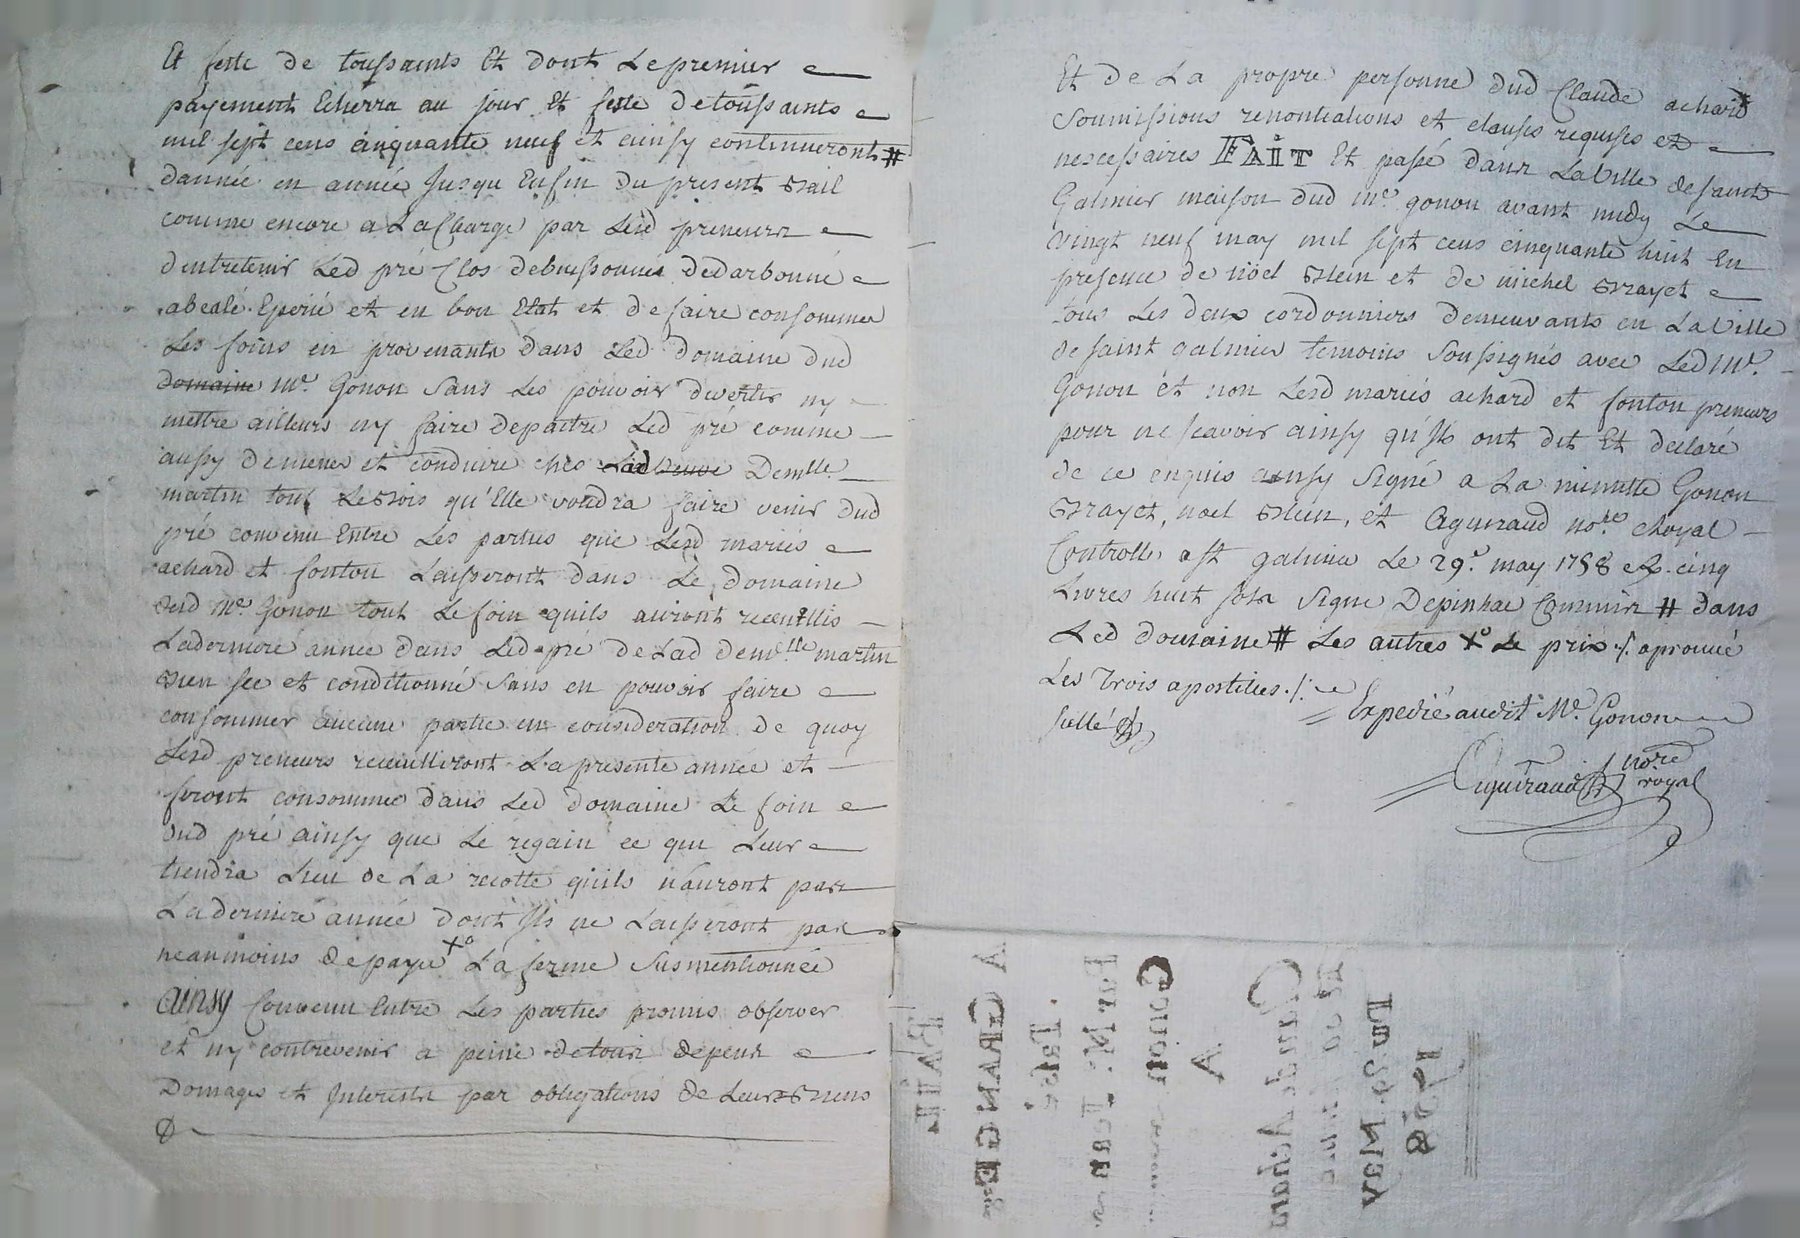 Et feste de toussaints Et dont Le premier
payement Echerra au jour Et feste de toussaints
mil sept cens cinquante neuf et ainsy continueront #
dannée en année Jusqu'Enfin du present Bail
comme encore a La Charge par Lesd preneurs
dentretenir Led pré Clos debuissonné dedarbonné
abealé Epierré et en bon Etat et de faire consommer
Les foins en provenants dans Led domaine dud
domaine Mr. Gonon Sans Les pouvoir divertir ny
mettre ailleurs ny faire depaitre Led pré comme
aussy de mener et conduire chés Lad veuve Demlle.
martin tous Le Bois qu'Elle voudra faire venir dud
pré convenu Entre Les parties que Lesd mariés
achard et fonton Laisseront dans Le domaine
dud Mr. Gonon tout Le foin quils auront recüeillis
La derniere année dans Led pré de Lad demlle martin
Bien sec et conditionné Sans en pouvoir faire
consommer aucune partie en consideration de quoy
Lesd preneurs recueilliront La presente année et
feront consommer dans Led domaine Le foin
dud pré ainsy que Le regain ce qui Leur
tiendra Lieu de La recolte quils n'auront pas
La derniere année dont Ils ne Laisseront pas
neanmoins de payer X° La ferme Susmentionnée
ainsy Convenu Entre Les parties promis observer
et ny contrevenir a peine de tous depens
Domages et Interests par obligations de Leurs Biens
Et de La propre personne dud Claude achard
Soumissions renontiations et clauses requises et
nescessaires FAIT Et passé dans La Ville de saint
Galmier maison dud Mr. gonon avant midy Le
vingt neuf may mil sept cens cinquante huit En
presence de nöel Blein et de michel Brayet
tous Les deux cordonniers demeurants en La Ville
de saint galmier temoins Soussignés avec Led Mr.
Gonon et non Lesd mariés achard et fonton preneurs
pour ne scavoir ainsy qu'Ils ont dit Et declaré
de ce enquis ainsy Signé a La minutte Gonon
Brayet, noel Blein, et Aguiraud nore. Royal
Controllé a St galmier Le 29e. may 1758 cinq
Livres huit sols Signé Depinhac Commis # dans
Led domaine # Les autres X° Le prix ./. aprouvé
Les trois apostilles ./.
scellé
Expedié audit Mr. Gonon
Aguiraud nore royal
BAIL
A GRANGE
Passé
Par Mr. Jean
Gonon
A
Claude Achard
et sa femme
Du 29 May
1758